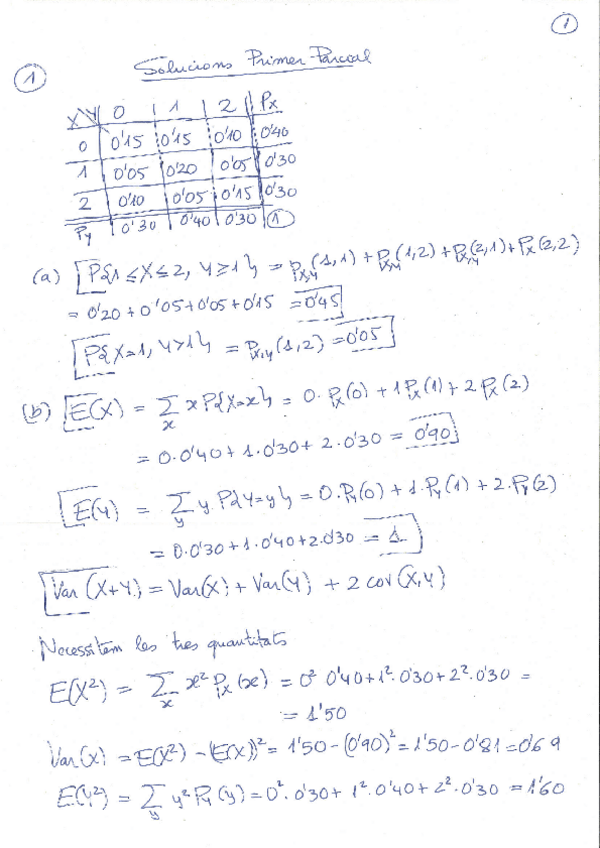 1
Solucions Primer Parcial
1
X Y 0 1 2 Px
0 0'15 0'15 0'10 0'40
1 0'05 0'20 0'05 0'30
2 0'10 0'05 0'15 0'30
Py 0'30 0'40 0'30 1
(a) P{1≤X≤2, Y≥1} = P_{X,Y}(1,1) + P_{X,Y}(1,2) + P_{X,Y}(2,1) + P_X(2,2)
= 0'20 + 0'05 + 0'05 + 0'15 = 0'45
P{X=1, Y>1} = P_{X,Y}(1,2) = 0'05
(b) E(X) = Σ_x x P{X=x} = 0·P_X(0) + 1P_X(1) + 2P_X(2)
= 0·0'40 + 1·0'30 + 2·0'30 = 0'90
E(Y) = Σ_y y·P{Y=y} = 0·P_Y(0) + 1·P_Y(1) + 2·P_Y(2)
= 0·0'30 + 1·0'40 + 2·0'30 = 1
Var(X+Y) = Var(X) + Var(Y) + 2 cov(X,Y)
Necessitem les tres quantitats
E(X²) = Σ_x x² P_X(x) = 0² 0'40 + 1²·0'30 + 2²·0'30 =
= 1'50
Var(X) = E(X²) - (E(X))² = 1'50 - (0'90)² = 1'50 - 0'81 = 0'69
E(Y²) = Σ_y y² P_Y(y) = 0²·0'30 + 1²·0'40 + 2²·0'30 = 1'60